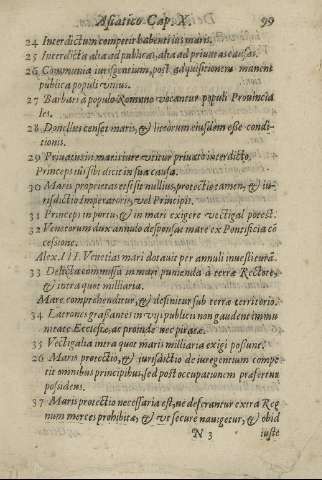 Asiatico Cap. X. 99
24 Interdictum competit habenti ius maris.
25 Interdicta alia ad publicas, alia ad priuatas causas.
26 Communia iure gentium, post adquisitionem manent
publica populi vnius.
27 Barbari a populo Romano vocantur populi Prouincia
les.
28 Donellus censet maris, & litorum eiusdem esse condi-
tionis.
29 Priuatus in mari iure vtitur priuato interdicto.
Princeps ius sibi dicit in sua causa.
30 Maris proprietas etsi sit nullius, protectio tamen, & iu-
risdictio Imperatoris, vel Principis.
31 Princeps in portu, & in mari exigere vectigal potest.
32 Venetorum dux annulo desponsat mare ex Pontificia cō
cessione.
Alex. III. Venetias mari dotauit per annuli inuestiturā.
33 Delicta commissa in mari punienda à terræ Rectore,
& intra quot milliaria.
Mare comprehenditur, & definitur sub terræ territorio.
34 Latrones grassantes in via publica non gaudent immu
nitate Ecclesiæ, ac proinde nec piratæ.
35 Vectigalia intra quot maris milliaria exigi possunt.
26 Maris protectio, & iurisdictio de iure gentium compe
tit omnibus principibus, sed post occupationem præfertur
possidens.
37 Maris protectio necessaria est, ne deferantur extra Reg
num merces prohibitæ, & vt securè nauigetur, & obid
N 3 iuste